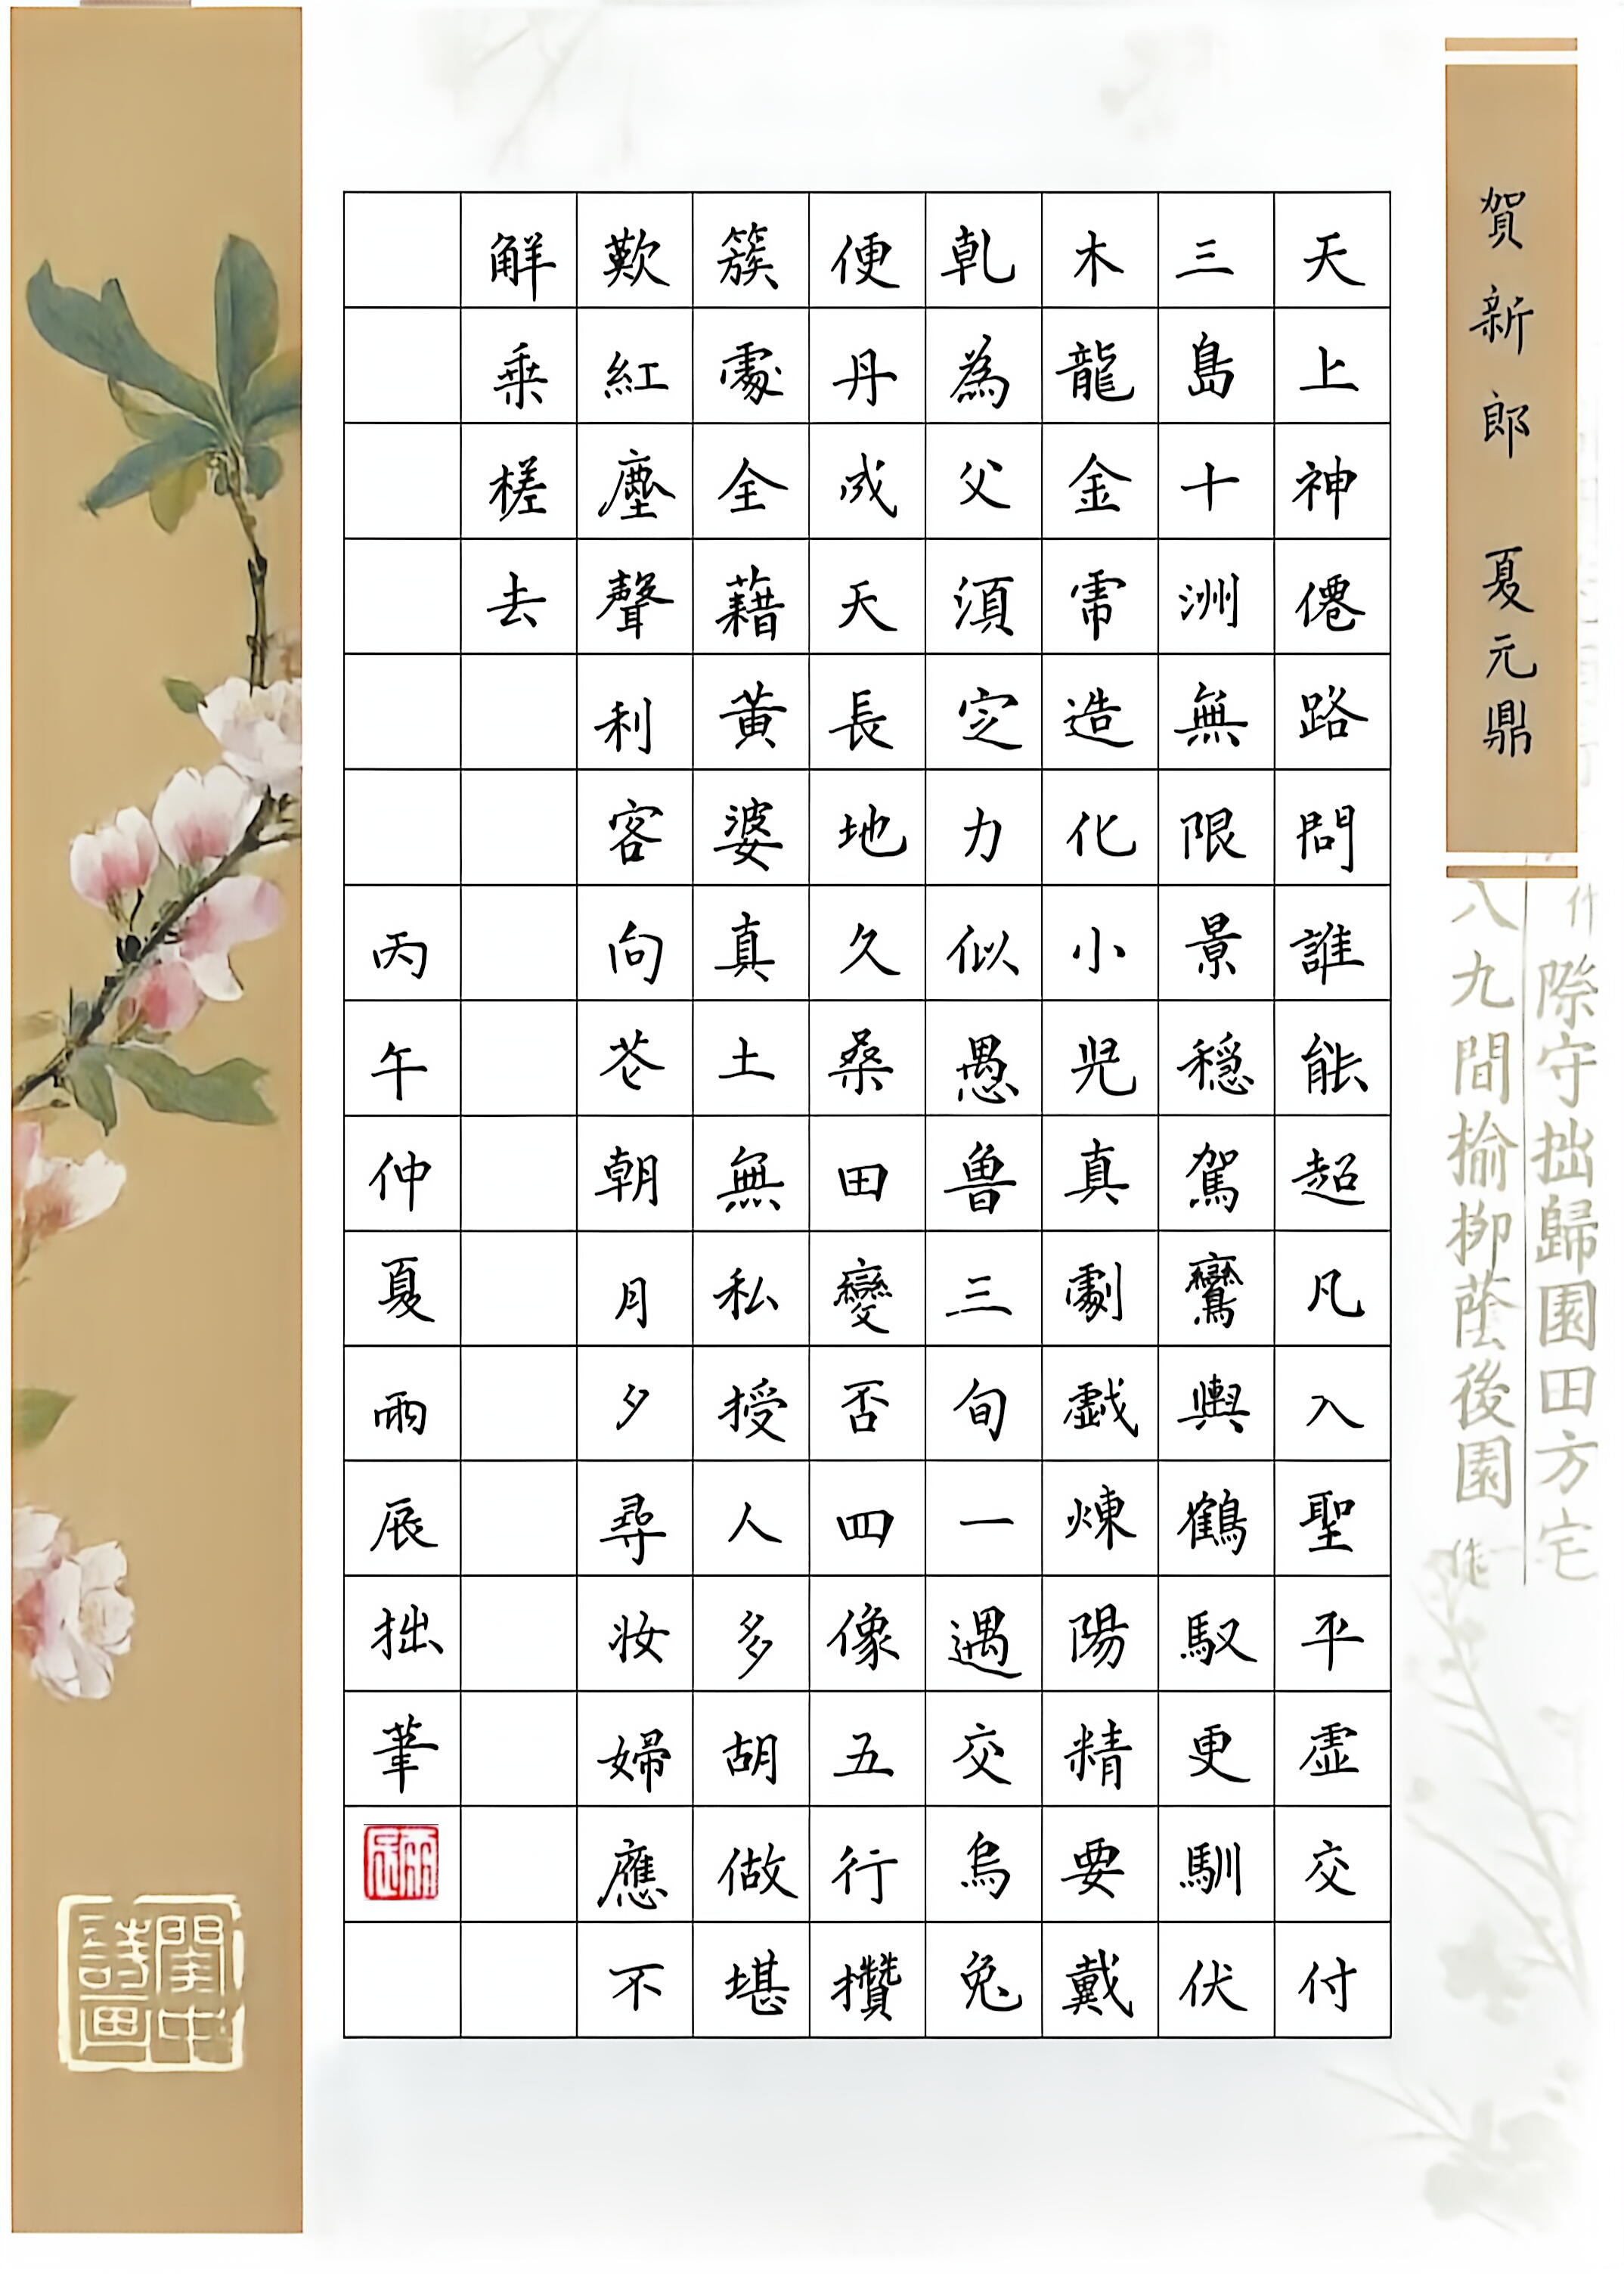 賀新郎 夏元鼎
天上神僊路問誰能超凡入聖平虛交付
三島十洲無限景穩駕鸞輿鶴馭更馴伏
木龍金虎造化小兒真劇戲煉陽精要戴
乾為父須定力似愚魯三旬一遇交烏兔
便丹成天長地久桑田變否四像五行攢
簇處全藉黃婆真土無私授人多胡做堪
歎紅塵聲利客向花朝月夕尋妝婦應不
解乘槎去
丙午仲夏雨辰拙筆
際守拙歸園田方宅
八九間榆柳蔭後園